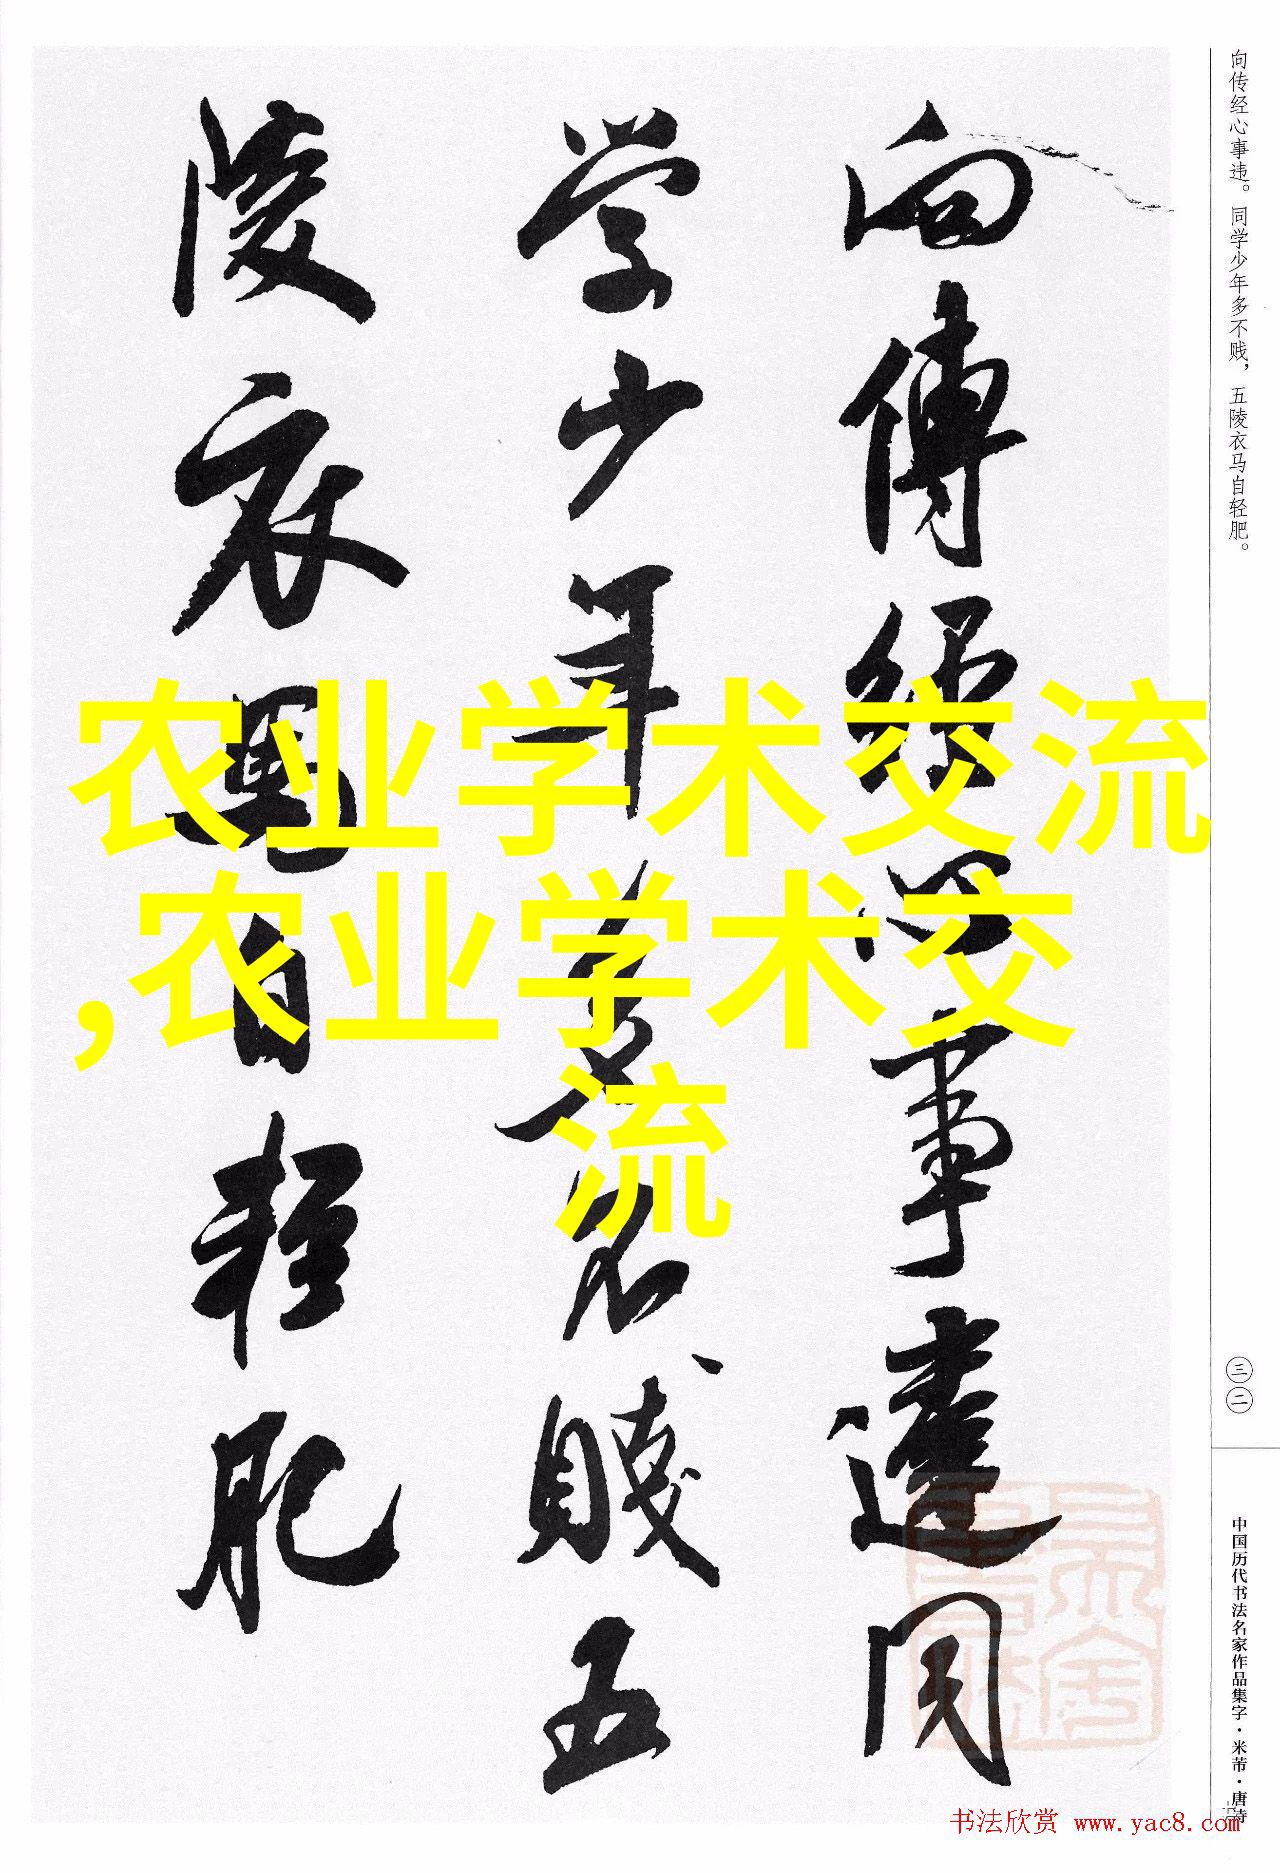 向传经心事违。同学少年多不贱，五陵衣马自轻肥。
向傳經心事違同
学少年多不賤五
陵衣馬自輕肥
农业学术交流
,农业学术交
流
三二
中国历代书法名家作品集字·米芾·唐诗
书法欣赏 www.yac8.com